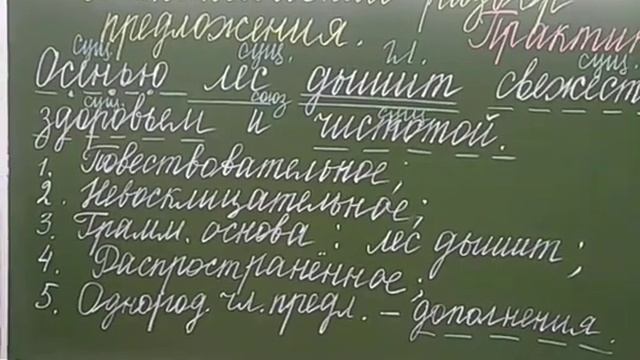 разбор
предложения. Практик
сущ. сущ. гл. сущ.
Осенью лес дышит свежест
сущ. союз сущ.
здоровьем и чистотой.
1. Повествовательное;
2. Невосклицательное;
3 Грамм. основа: лес дышит;
4. Распространённое;
5. Однород. чл. предл. – дополнения.